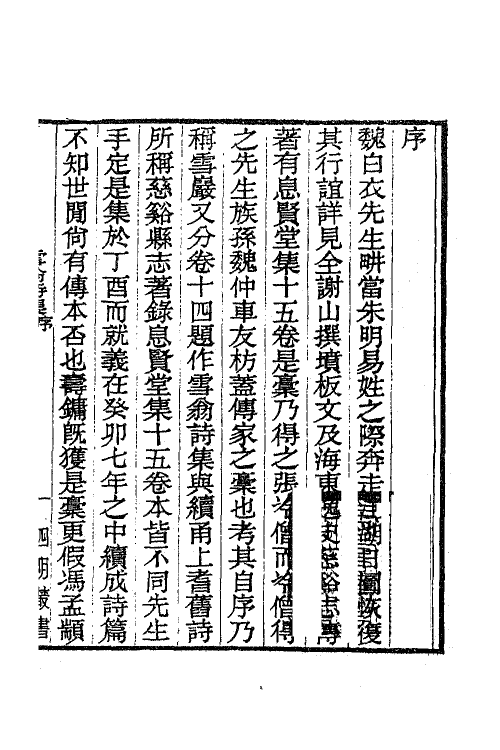 序
魏白衣先生畊當朱明易姓之際奔走江湖日圖恢復
其行誼詳見全謝山撰墳板文及海東逸史慈谿志傳
著有息賢堂集十五卷是稾乃得之張泠僧而泠僧得
之先生族孫魏仲車友枋蓋傳家之稾也考其自序乃
稱雪嚴又分卷十四題作雪翁詩集與續甬上耆舊詩
所稱慈谿縣志著錄息賢堂集十五卷本皆不同先生
手定是集於丁酉而就義在癸卯七年之中續成詩篇
不知世閒尙有傳本否也壽鏞旣獲是稾更假馮孟顓
雪翁詩集序
一
四明叢書